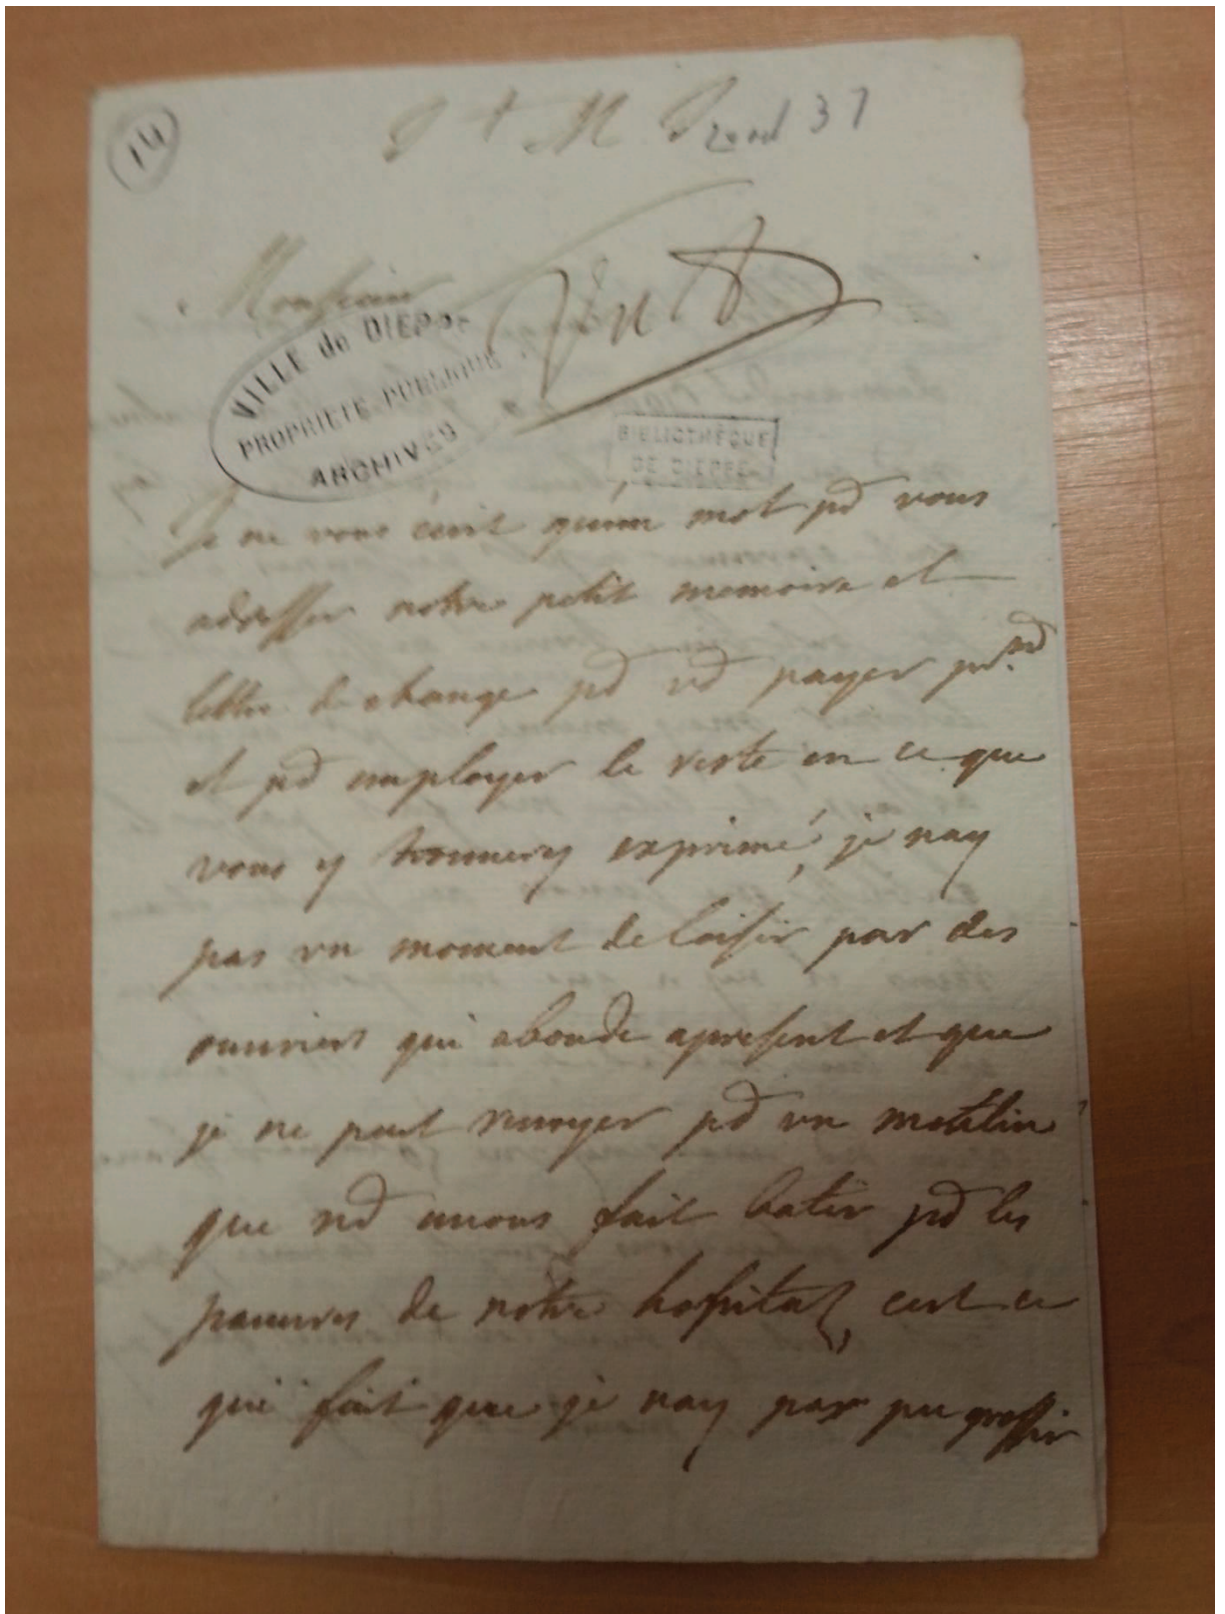 14
J + M J 20 oct 37
Monsieur
VILLE de DIEPPE
PROPRIETE PUBLIQUE
ARCHIVES
BIBLIOTHÈQUE
DE DIEPPE
Je ne vous écrit qu'un mot pr vous
adresser notre petit memoire et
lettre de change pr vs payer
et pr employer le reste en ce que
vous y trouverez exprimé, je nay
pas vn moment de loisir par des
ouuriers qui abonde apresent et que
je ne peut renuoyer pr vn moulin
que ns auons fait batir pr les
pauures de notre hopital, cest ce
qui fait que je nay pas pu grossir